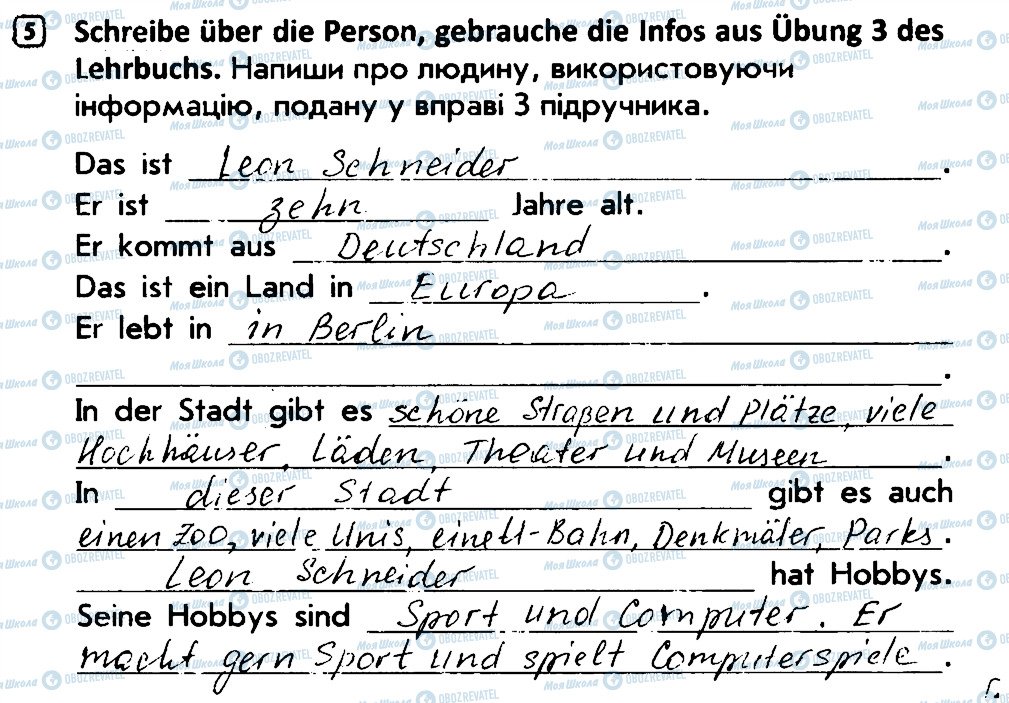 5 Schreibe über die Person, gebrauche die Infos aus Übung 3 des
Lehrbuchs. Напиши про людину, використовуючи
інформацію, подану у вправі 3 підручника.
Das ist Leon Schneider.
Er ist zehn Jahre alt.
Er kommt aus Deutschland.
Das ist ein Land in Europa.
Er lebt in in Berlin
.
In der Stadt gibt es schöne Straßen und Plätze, viele
Hochhäuser, Läden, Theater und Museen.
In dieser Stadt gibt es auch
einen Zoo, viele Unis, eine U-Bahn, Denkmäler, Parks.
Leon Schneider hat Hobbys.
Seine Hobbys sind Sport und Computer. Er
macht gern Sport und spielt Computerspiele.